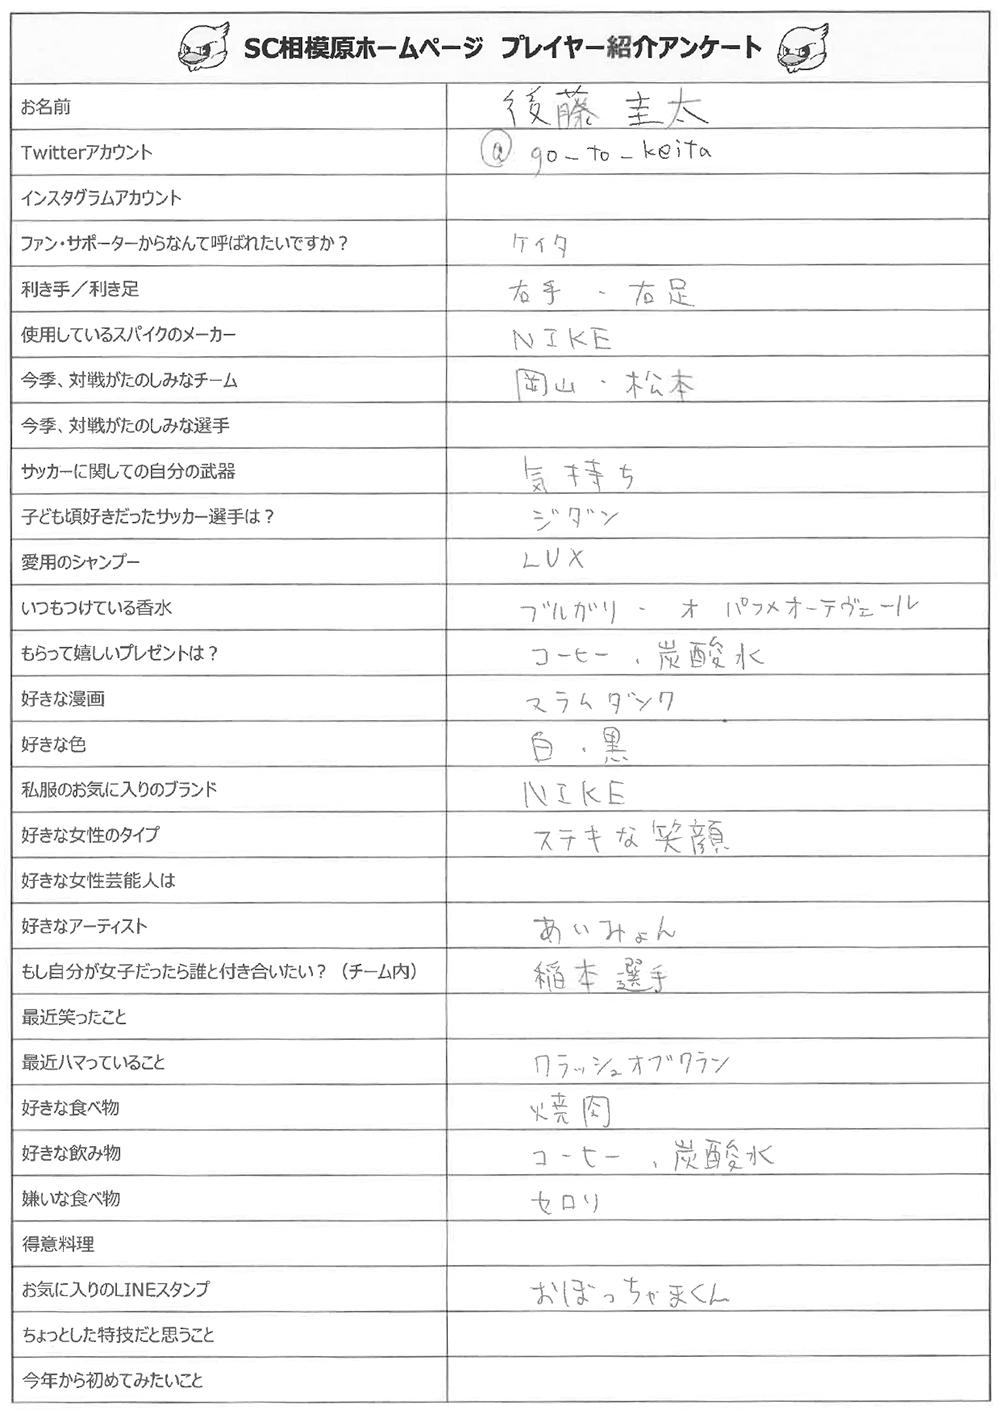 SC相模原ホームページ プレイヤー紹介アンケート
お名前 後藤 圭太
Twitterアカウント @ go_to_keita
インスタグラムアカウント
ファン・サポーターからなんて呼ばれたいですか？ ケイタ
利き手／利き足 右手・右足
使用しているスパイクのメーカー NIKE
今季、対戦がたのしみなチーム 岡山・松本
今季、対戦がたのしみな選手
サッカーに関しての自分の武器 気持ち
子ども頃好きだったサッカー選手は？ ジダン
愛用のシャンプー LUX
いつもつけている香水 ブルガリ・オ パフメオーテヴェール
もらって嬉しいプレゼントは？ コーヒー、炭酸水
好きな漫画 スラムダンク
好きな色 白・黒
私服のお気に入りのブランド NIKE
好きな女性のタイプ ステキな笑顔
好きな女性芸能人は
好きなアーティスト あいみょん
もし自分が女子だったら誰と付き合いたい？（チーム内） 稲本選手
最近笑ったこと
最近ハマっていること クラッシュオブクラン
好きな食べ物 焼肉
好きな飲み物 コーヒー、炭酸水
嫌いな食べ物 セロリ
得意料理
お気に入りのLINEスタンプ おぼっちゃまくん
ちょっとした特技だと思うこと
今年から初めてみたいこと